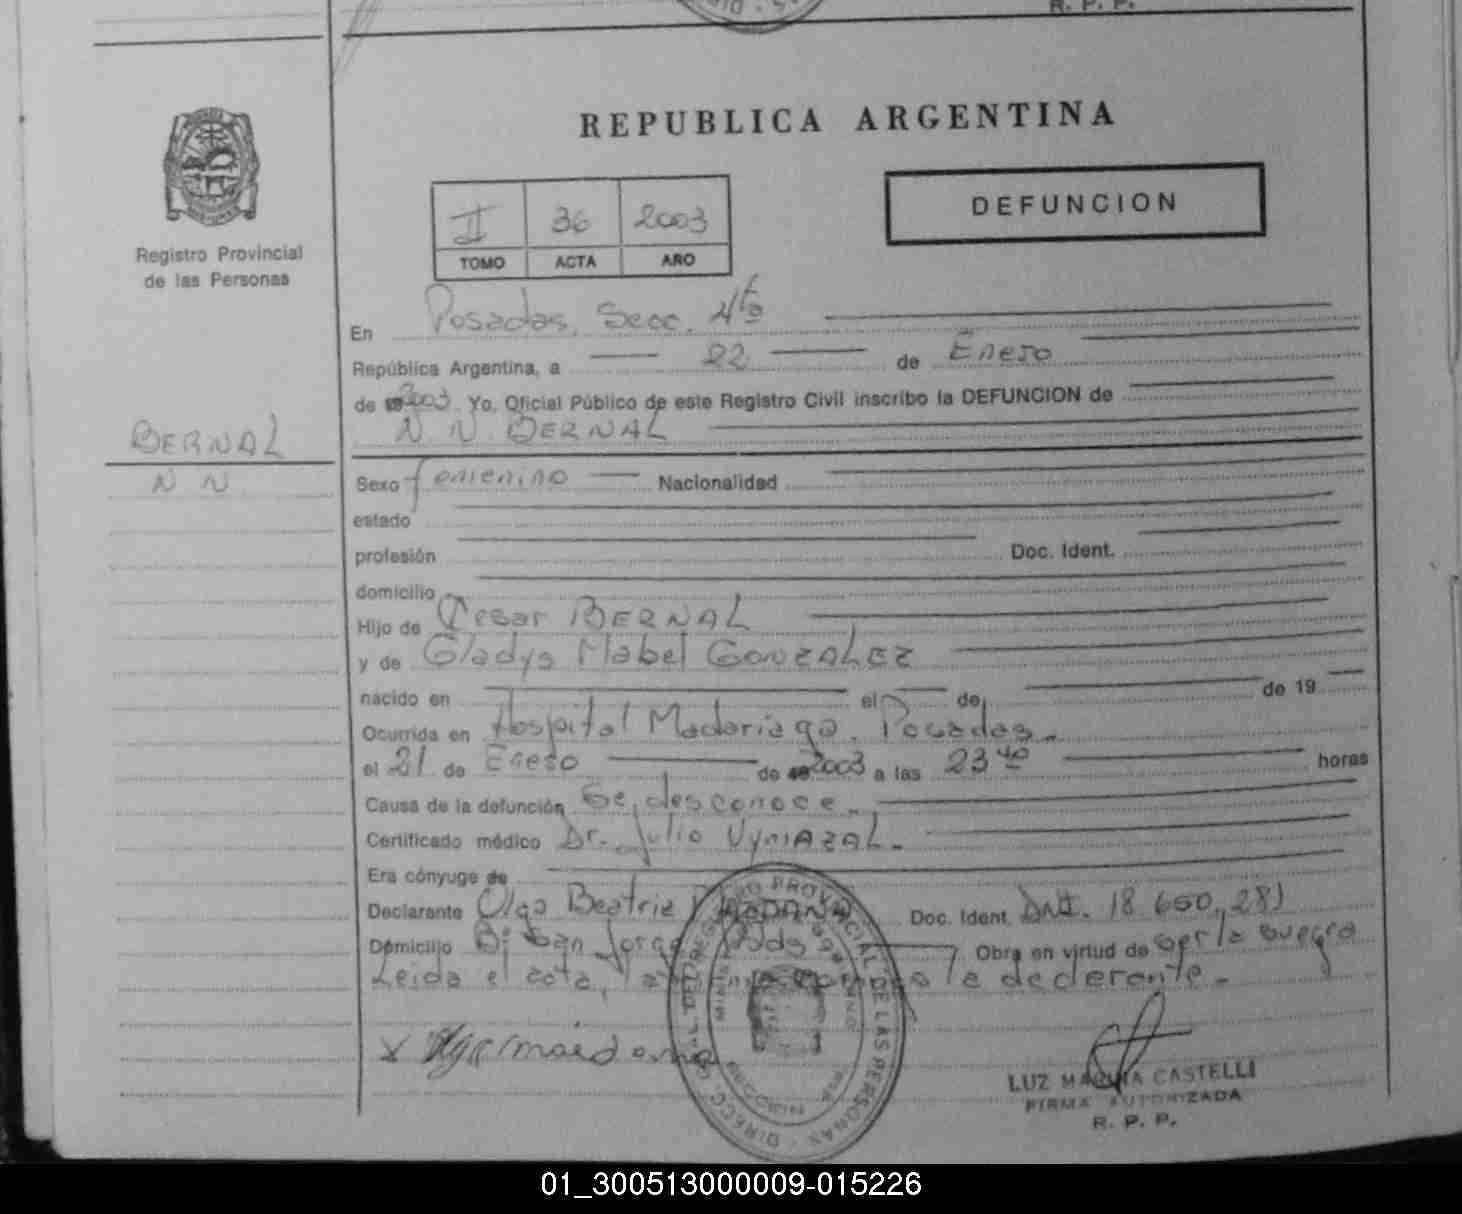 R. P. P.
REPUBLICA ARGENTINA
II 36 2003
TOMO ACTA AÑO
DEFUNCION
Registro Provincial
de las Personas
En Posadas, Secc. 4ta
República Argentina, a 22 de Enero
de 2003 Yo, Oficial Público de este Registro Civil inscribo la DEFUNCION de
N N BERNAL
BERNAL
N N
Sexo femenino Nacionalidad
estado
profesión Doc. Ident.
domicilio
Hijo de Cesar BERNAL
y de Gladys Mabel GONZALEZ
nacido en el de de 19
Ocurrida en Hospital Madariaga. Posadas.
el 21 de Enero de 2003 a las 23 40 horas
Causa de la defunción Se desconoce.
Certificado médico Dr. Julio VYMAZAL.
Era cónyuge de
Declarante Olga Beatriz Doc. Ident. DNI. 18.650.281
Domicilio Bº San Jorge Pdas Obra en virtud de ser la suegra
Leida el acta, la declarante.
LUZ MARINA CASTELLI
FIRMA AUTORIZADA
R. P. P.
01_300513000009-015226